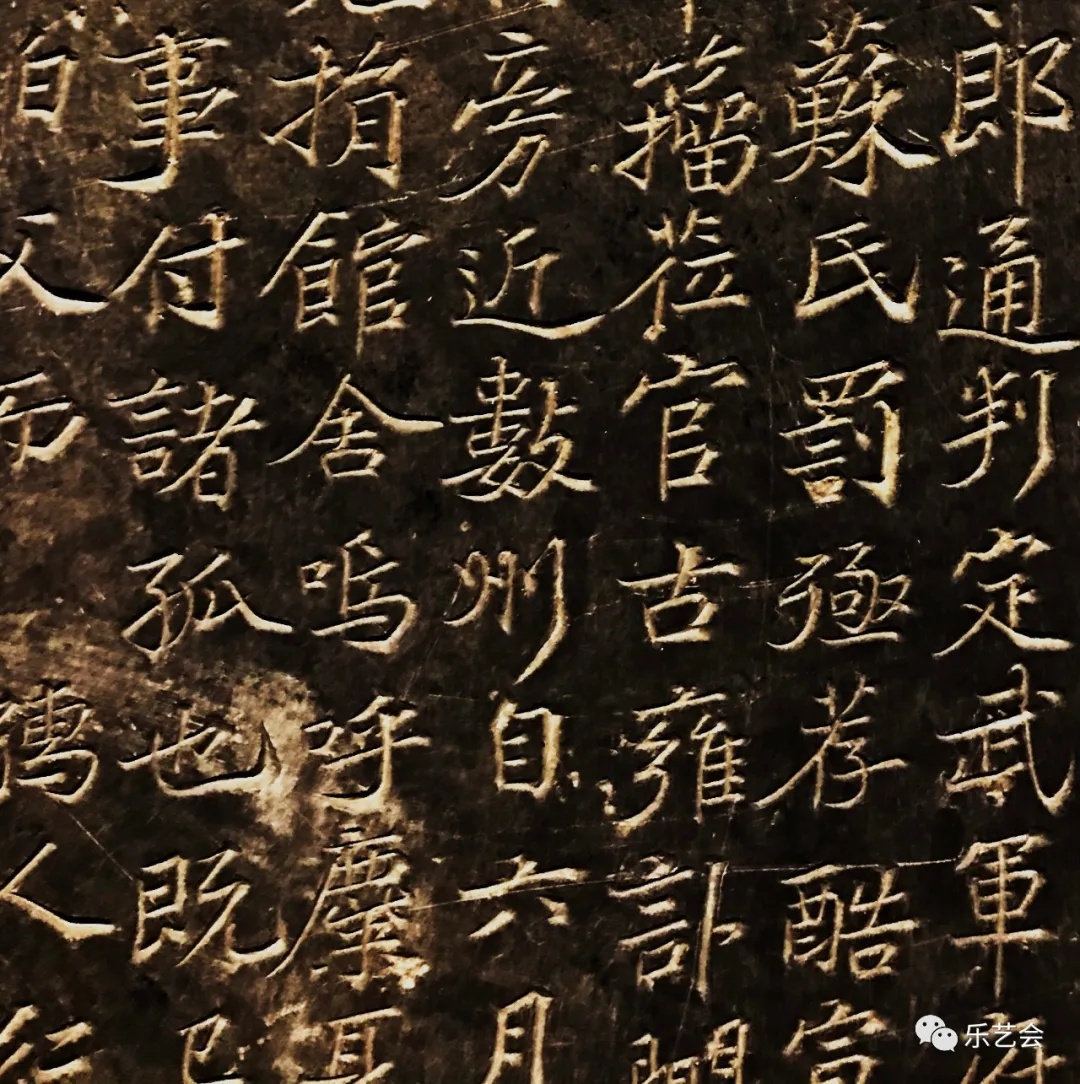 郎通判定武軍
蘇民罰殛荐酷
籀莅官古雍訃
旁近數州自六月
捐館舍嗚呼
事付諸孤也既已
人
乐艺会